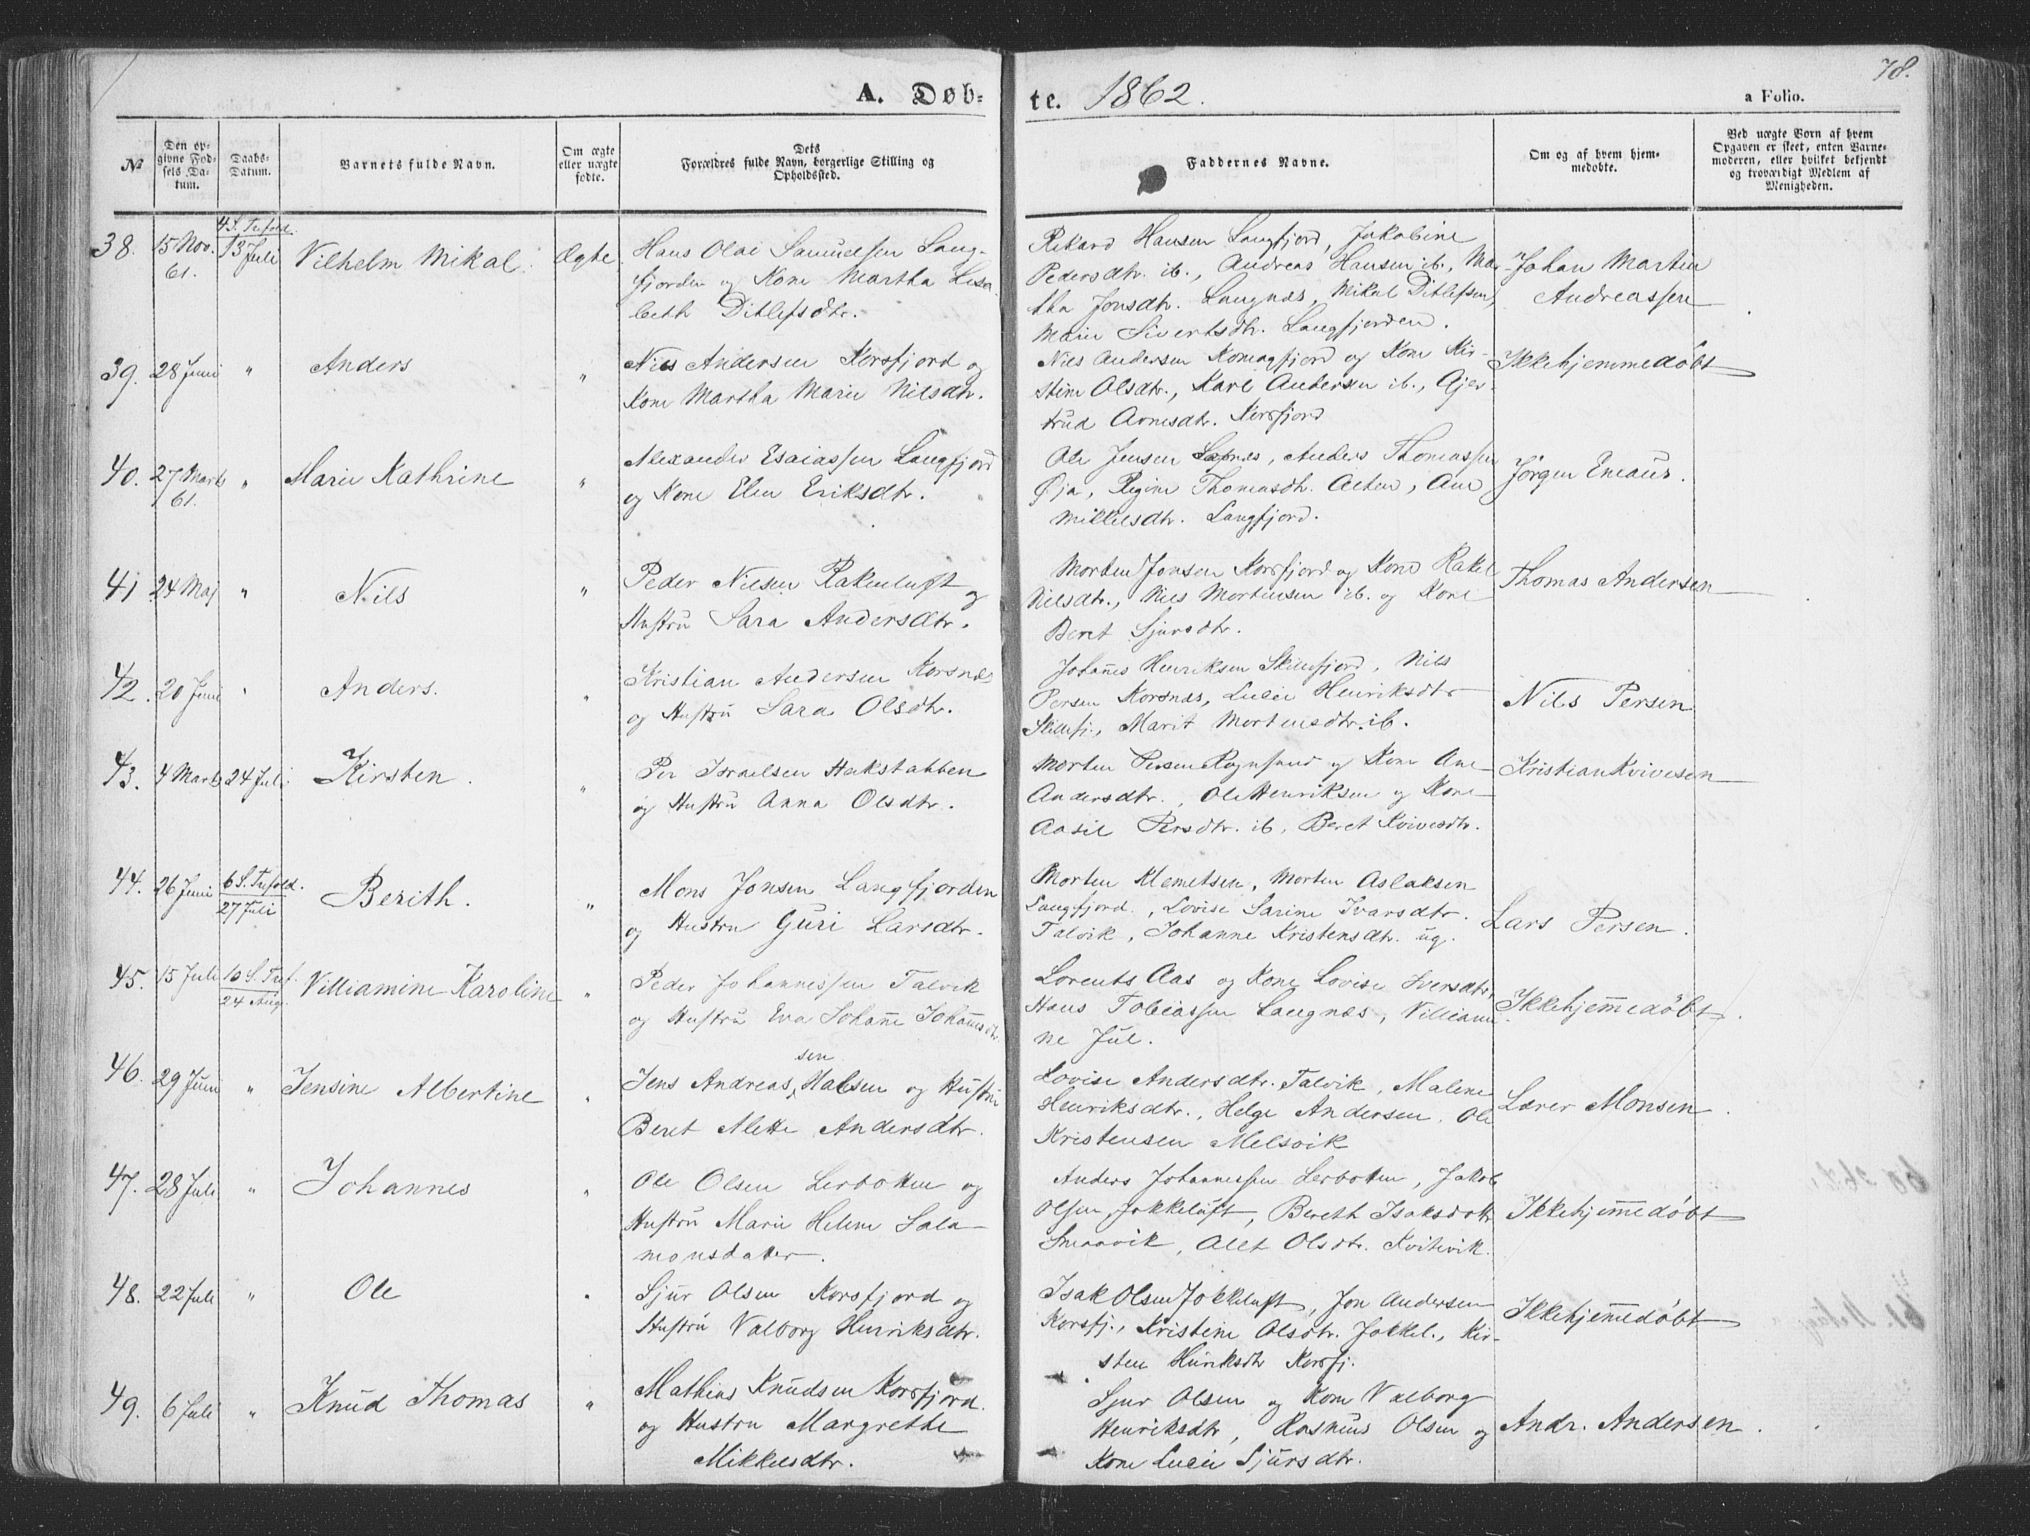 A. Døb-
te. 1862.
78.
a Folio.
№
Den op-
givne Fød-
sels Da-
tum.
Daabs-
Datum.
Barnets fulde Navn.
Om ægte
eller uægte
fødte.
Dets
Forældres fulde Navn, borgerlige Stilling og
Opholdssted.
Faddernes Navne.
Om og af hvem hjem-
medøbte.
Ved uægte Børn af hvem
Opgaven er skeet, enten Barne-
moderen, eller hvilket bekjendt
og troværdigt Medlem af
Menigheden.
38.
15 Nov.
61.
4 S. Trefold.
13 Juli
Vilhelm Mikal
Ægte
Hans Olai Samuelsen Lang-
fjorden og Kone Martha Lisa-
beth Ditlefsdtr.
Rikard Hansen Langfjord, Jakobine
Pedersdtr. ib., Andreas Hansen ib., Mar-
tha Jonsdtr. Langnæs, Mikal Ditlefsen,
Marie Sivertsdtr. Langfjorden.
Johan Martin
Andreassen
39.
28 Juni
"
Anders
"
Nils Andersen Korsfjord og
Kone Martha Marie Nilsdtr.
Nils Andersen Komagfjord og Kone Kir-
stine Olsdtr., Karl Andersen ib., Gjer-
trud Arnesdtr. Korsfjord
Ikkehjemmedøbt
40.
27 Marts
61.
"
Marie Kathrine
"
Alexander Esaiassen Langfjord
og Kone Elen Eriksdtr.
Ole Jensen, Anders Thomassen
Øja, Regine Thomasdtr. Alten, Ane
Mikkelsdtr. Langfjord.
Jørgen Emaus.
41
24 Maj
"
Nils
"
Peder Nilsen Rakenluft og
Hustru Sara Andersdtr.
Morten Jonsen Korsfjord og Kone Rakel
Nilsdtr., Nils Mortensen ib. og Kone
Beret Sjursdtr.
Thomas Andersen
42.
20 Juni
"
Anders.
"
Kristian Andersen Korsnæs
og Hustru Sara Olsdtr.
Johanes Henriksen Skillefjord, Nils
Persen Korsnæs, Lucie Henriksdtr
Skillefj., Marit Mortensdtr. ib.
Nils Persen
43.
4 Marts
24 Juli
Kirsten.
"
Per Israelsen Hakstabben
og Hustru Anna Olsdtr.
Morten Persen Rognsund og Kone Ane
Andersdtr., Ole Henriksen og Kone
Aasil Persdtr. ib, Beret Kvivesdtr.
Kristian Kvivesen
44.
26 Juni
6 S. Trefold.
27 Juli
Berith.
"
Mons Jonsen Langfjorden
og Hustru Guri Larsdtr.
Morten Klemetsen, Morten Aslaksen
Langfjord., Lovise Sarine Ivarsdtr.
Talvik, Johanne Kristensdtr. ug.
Lars Persen.
45.
15 Juli
10 S. Tref.
24 Aug.
Villiamine Karoline
"
Peder Johannessen Talvik
og Hustru Eva Johane Johanesdtr.
Lorents Aas og Kone Lovise Iversdtr.
Hans Tobiassen Langnæs, Villiami-
ne Jul.
Ikkehjemedøbt.
46.
29 Juni
"
Jensine Albertine
"
sen
Jens Andreas Halsen og Hustru
Beret Mette Andersdtr.
Lovise Andersdtr. Talvik, Malene
Henriksdtr., Helge Andersen, Ole
Kristensen Melsvik
Lærer Monsen
47.
28 Juli
"
Johannes
"
Ole Olsen Lerbotten og
Hustru Marie Helene Sala-
monsdatter.
Anders Johannessen Lerbotten, Jakob
Olsen Jokkeluft, Bereth Isaksdottr
Smaavik, Olsdtr. Kvitvik.
Ikkehjemedøbt
48.
22 Juli
"
Ole
"
Sjur Olsen Korsfjord og
Hustru Valborg Henriksdtr.
Isak Olsen Jokkeluft, Jon Andersen
Korsfj., Kristine Olsdtr. Jokkel., Kir-
sten Henriksdtr Korsfj.
Ikkehjemedøbt
49.
6 Juli
"
Knud Thomas
"
Mathias Knudsen Korsfjord.
og Hustru Margrethe
Mikkelsdtr.
Sjur Olsen og Kone Valborg
Henriksdtr, Rasmus Olsen og
Kone Lucie Sjursdtr.
Andr. Andersen.